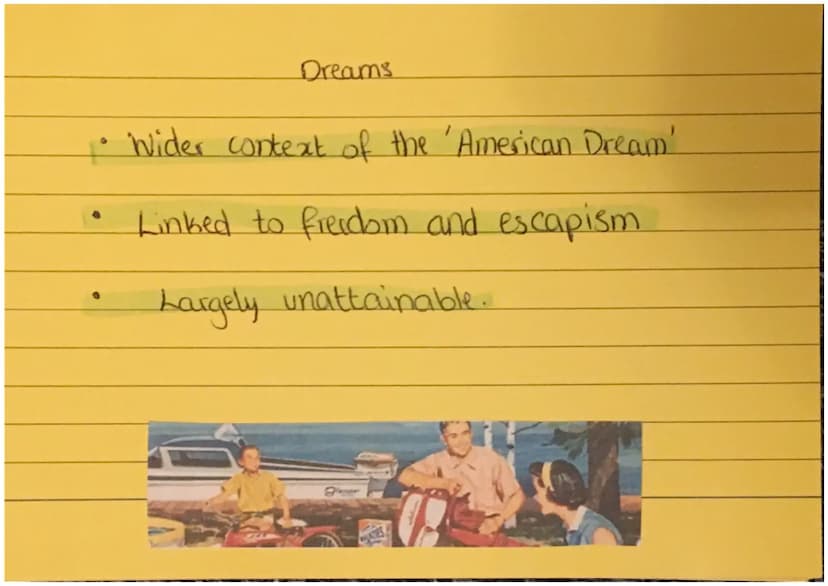 Dreams
• Wider context of the 'American Dream'
• Linked to freedom and escapism
• Largely unattainable.